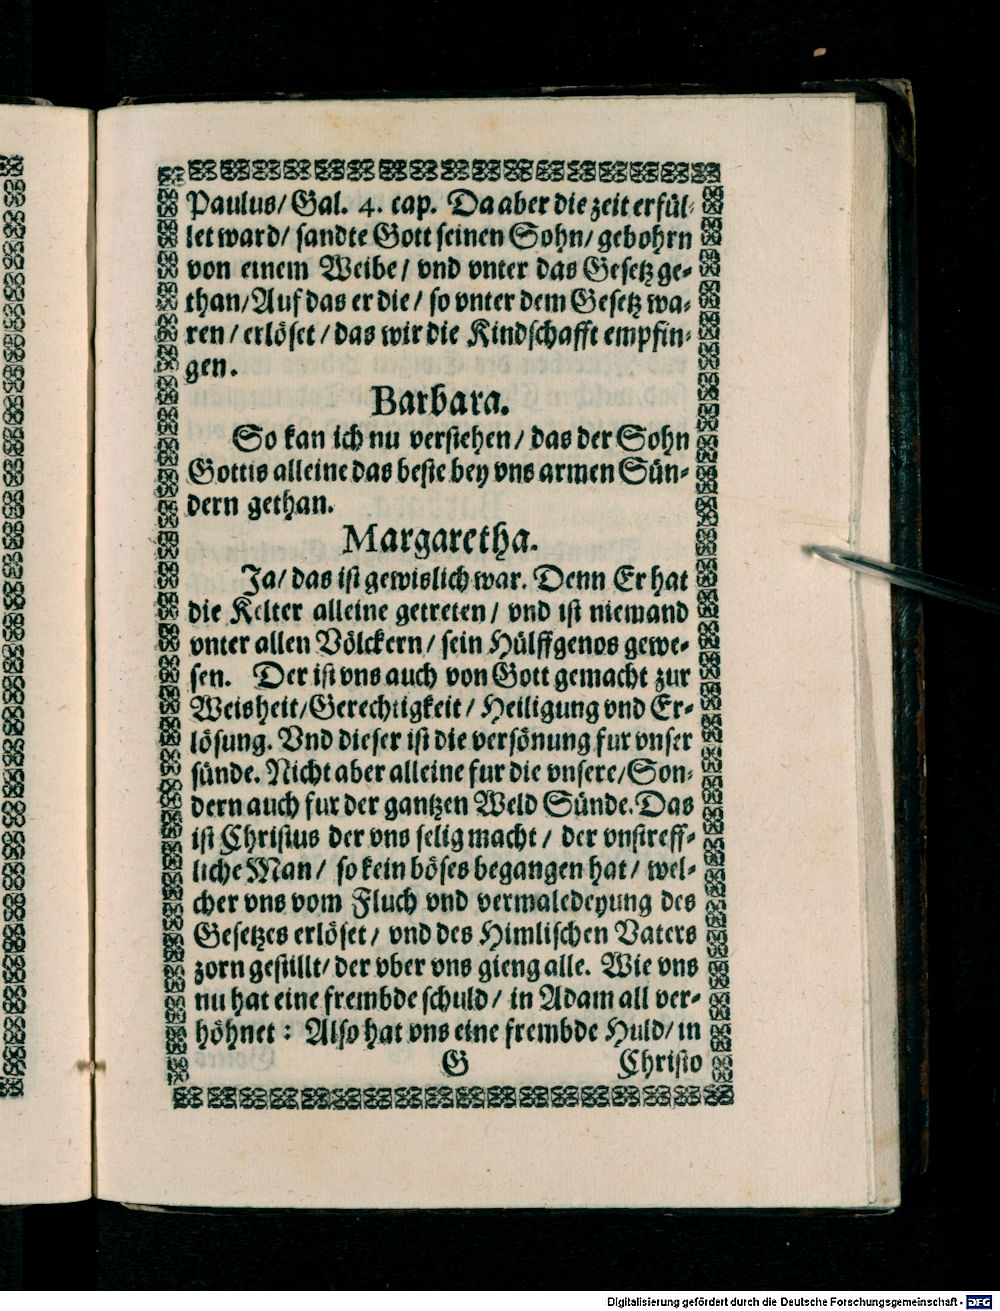 Paulus/ Gal. 4. cap. Da aber die zeit erfül-
let ward/ sandte Gott seinen Sohn/ gebohrn
von einem Weibe/ vnd vnter das Gesetz ge-
than/ Auf das er die/ so vnter dem Gesetz wa-
ren/ erlöset/ das wir die Kindschafft empfin-
gen.
Barbara.
So kan ich nu verstehen/ das der Sohn
Gottis alleine das beste bey vns armen Sün-
dern gethan.
Margaretha.
Ja/ das ist gewislich war. Denn Er hat
die Kelter alleine getreten/ vnd ist niemand
vnter allen Völckern/ sein Hülffgenos gewe-
sen. Der ist vns auch von Gott gemacht zur
Weisheit/ Gerechtigkeit/ Heiligung vnd Er-
lösung. Vnd dieser ist die versönung fur vnser
sünde. Nicht aber alleine fur die vnsere/ Son-
dern auch fur der gantzen Weld Sünde. Das
ist Christus der vns selig macht/ der vnstreff-
liche Man/ so kein böses begangen hat/ wel-
cher vns vom Fluch vnd vermaledeyung des
Gesetzes erlöset/ vnd des Himlischen Vaters
zorn gestillt/ der vber vns gieng alle. Wie vns
nu hat eine frembde schuld/ in Adam all ver-
höhnet: Also hat vns eine frembde Huld/ in
G Christo
Digitalisierung gefördert durch die Deutsche Forschungsgemeinschaft - DFG